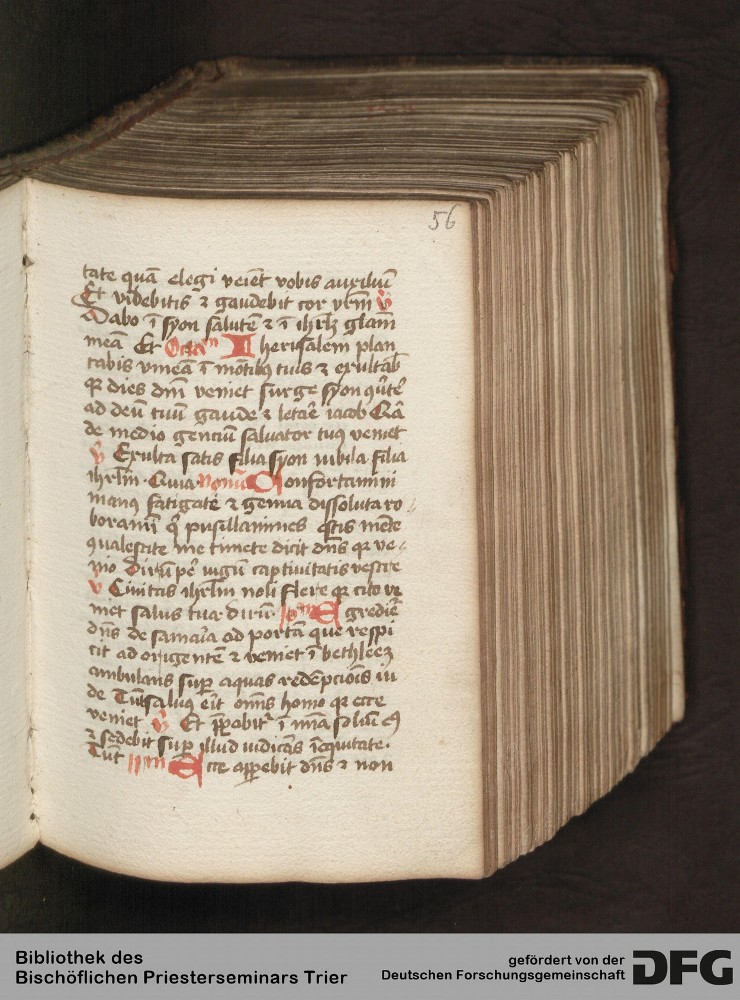 56
tate quā elegi veiēt vobis auxiliū
Et videbitis ⁊ gaudebit cor vr̄m ꝟ
Dabo ī syon salutē ⁊ ī ihrl̄z glām
meā Et Octaūm Iherusalem plan
tabis vineam ī mōtibꝫ tuis ⁊ exultab̄
qꝛ dies dn̄i veniet surge syon
ad deū tuū gaude ⁊ letare iacob Q̄a
de medio genciū saluator tuꝰ veniet
ꝟ Exulta satis filia syon iubila filia
ihrl̄m · Quia nonū Confortamini
manꝰ fatigate ⁊ genua dissoluta ro
boramī qͥ pusillanimes estis mēte
ꝯualescite ne timete dicit dn̄s qꝛ ve
nio Dirūpe͛ iugū captiuitatis vestre
ꝟ Ciuitas ihrl̄m noli flere qꝛ cito ve
niet salus tua Dirūꝑ xm Egrediē
dn̄s de samaria ad portā que respi
cit ad origentē ⁊ veniet ī bethleez
ambulans suꝑ aquas redēpcioīs iu
de Tūc saluꝰ eīt omīs homo qꝛ ecce
veniet ꝟ Et p̄ꝑabitͬ ī mīa soliū eꝰ
⁊ sedebit suꝑ illud iudicās ī equitate ·
Tūc xjm Ecce apꝑebit dn̄s ⁊ non
Bibliothek des
Bischöflichen Priesterseminars Trier
gefördert von der
Deutschen Forschungsgemeinschaft
DFG